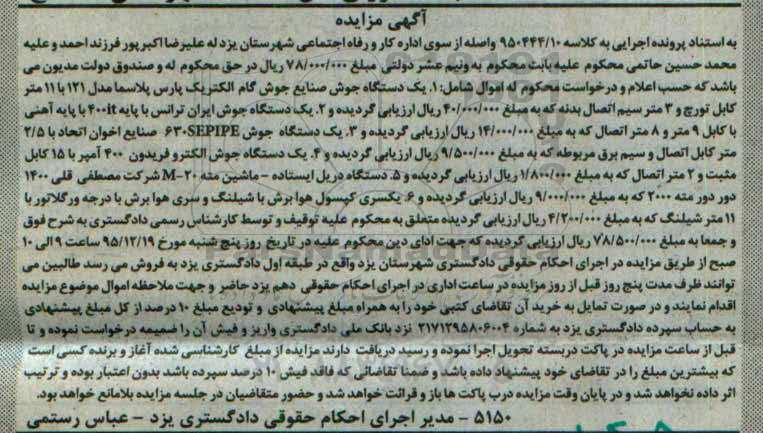 آگهی مزایده
به استناد پرونده اجرایی به کلاسه ۹۵۰۴۴۴/۱۰ واصله از سوی اداره کار و رفاه اجتماعی شهرستان یزد له علیرضا اکبرپور فرزند احمد و علیه
محمد حسین حاتمی محکوم علیه بابت محکوم به ونیم عشر دولتی مبلغ ۷۸/۰۰۰/۰۰۰ ریال در حق محکوم له و صندوق دولت مدیون می
باشد که حسب اعلام و درخواست محکوم له اموال شامل: ۱. یک دستگاه جوش صنایع جوش گام الکتریک پارس پلاسما مدل ۱۲۱ با ۱۱ متر
کابل تورچ و ۳ متر سیم اتصال بدنه که به مبلغ ۴۰/۰۰۰/۰۰۰ ریال ارزیابی گردیده و ۲. یک دستگاه جوش ایران ترانس با پایه ۴۰۰it با پایه آهنی
با کابل ۹ متر و ۸ متر اتصال که به مبلغ ۱۴/۰۰۰/۰۰۰ ریال ارزیابی گردیده و ۳. یک دستگاه جوش ۶۳۰SEPIPE صنایع اخوان اتحاد با ۲/۵
متر کابل اتصال و سیم برق مربوطه که به مبلغ ۹/۵۰۰/۰۰۰ ریال ارزیابی گردیده و ۴. یک دستگاه جوش الکترو فریدون ۴۰۰ آمپر با ۱۵ کابل
مثبت و ۲ متر اتصال که به مبلغ ۱/۸۰۰/۰۰۰ ریال ارزیابی گردیده و ۵. دستگاه دریل ایستاده - ماشین مته M-۲۰ شرکت مصطفی قلی ۱۴۰۰
دور دور مته ۲۰۰۰ که به مبلغ ۹/۰۰۰/۰۰۰ ریال ارزیابی گردیده و ۶. یکسری کپسول هوا برش با شیلنگ و سری هوا برش با درجه ورگلاتور با
۱۱ متر شیلنگ که به مبلغ ۴/۲۰۰/۰۰۰ ریال ارزیابی گردیده متعلق به محکوم علیه توقیف و توسط کارشناس رسمی دادگستری به شرح فوق
و جمعا به مبلغ ۷۸/۵۰۰/۰۰۰ ریال ارزیابی گردیده که جهت ادای دین محکوم علیه در تاریخ روز پنج شنبه مورخ ۹۵/۱۲/۱۹ ساعت ۹ الی ۱۰
صبح از طریق مزایده در اجرای احکام حقوقی دادگستری شهرستان یزد واقع در طبقه اول دادگستری یزد به فروش می رسد طالبین می
توانند ظرف مدت پنج روز قبل از روز مزایده در ساعت اداری در اجرای احکام حقوقی دهم یزد حاضر و جهت ملاحظه اموال موضوع مزایده
اقدام نمایند و در صورت تمایل به خرید آن تقاضای کتبی خود را به همراه مبلغ پیشنهادی و تودیع مبلغ ۱۰ درصد از کل مبلغ پیشنهادی
به حساب سپرده دادگستری یزد به شماره ۲۱۷۱۲۹۵۸۰۶۰۰۴ نزد بانک ملی دادگستری واریز و فیش آن را ضمیمه درخواست نموده و تا
قبل از ساعت مزایده در پاکت دربسته تحویل اجرا نموده و رسید دریافت دارند مزایده از مبلغ کارشناسی شده آغاز و برنده کسی است
که بیشترین مبلغ را در تقاضای خود پیشنهاد داده باشد و ضمنا تقاضائی که فاقد فیش ۱۰ درصد سپرده باشد بدون اعتبار بوده و ترتیب
اثر داده نخواهد شد و در پایان وقت مزایده درب پاکت ها باز و قرائت خواهد شد و حضور متقاضیان در جلسه مزایده بلامانع خواهد بود.
۵۱۵۰ - مدیر اجرای احکام حقوقی دادگستری یزد - عباس رستمی